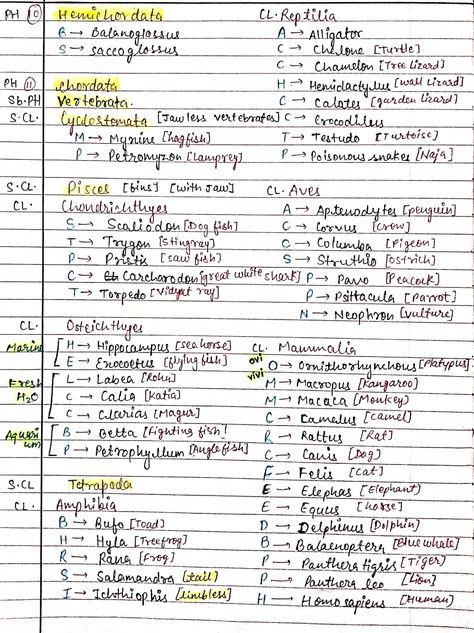 PH 10 Hemichordata
B → Balanoglossus
S → saccoglossus
PH 11 chordata
Sb.PH Vertebrata
S.CL. Cyclostomata [Jawless vertebrates]
M → Myxine [hagfish]
P → Petromyzon [Lamprey]
S.CL. Pisces [bins] [with Jaw]
CL. Chondrichthyes
S → Scoliodon [Dog fish]
T → Trygon [Stingray]
P → Pristis [saw fish]
C → Carcharodon [great white shark]
T → Torpedo [Vidyut ray]
CL. Osteichthyes
Marine H → Hippocampus [sea horse]
E → Exocoetus [flying fish]
Fresh H₂O L → Labea [Rohu]
C → Catla [Katla]
C → Clarias [Magur]
Aquarium B → Betta [Fighting fish]
P → Petrophyllum [Angle fish]
S.CL Tetrapoda
CL. Amphibia
B → Bufo [Toad]
H → Hyla [Treefrog]
R → Rana [Frog]
S → Salamandra [tail]
I → Ichthiophis [limbless]
CL. Reptilia
A → Alligator
C → Chelone [Turtle]
C → Chameleon [Tree lizard]
H → Hemidactylus [wall lizard]
C → Calotes [garden lizard]
C → Crocodilus
T → Testudo [Turtoise]
P → Poisonous snakes [Naja]
CL. Aves
A → Aptenodytes [penguin]
C → Corvus [Crow]
C → Columba [Pigeon]
S → Struthio [ostrich]
P → Pavo [Peacock]
P → Psittacula [Parrot]
N → Neophron [vulture]
CL. Mammalia
ovi O → Ornithorhynchous [Platypus]
vivi M → Macropus [Kangaroo]
M → Macaca [Monkey]
C → Camelus [Camel]
R → Rattus [Rat]
C → Canis [Dog]
F → Felis [Cat]
E → Elephas [Elephant]
E → Equus [horse]
D → Delphinus [Dolphin]
B → Balaenoptera [Blue whale]
P → Panthera tigris [Tiger]
P → Panthera leo [Lion]
H → Homo sapiens [Human]